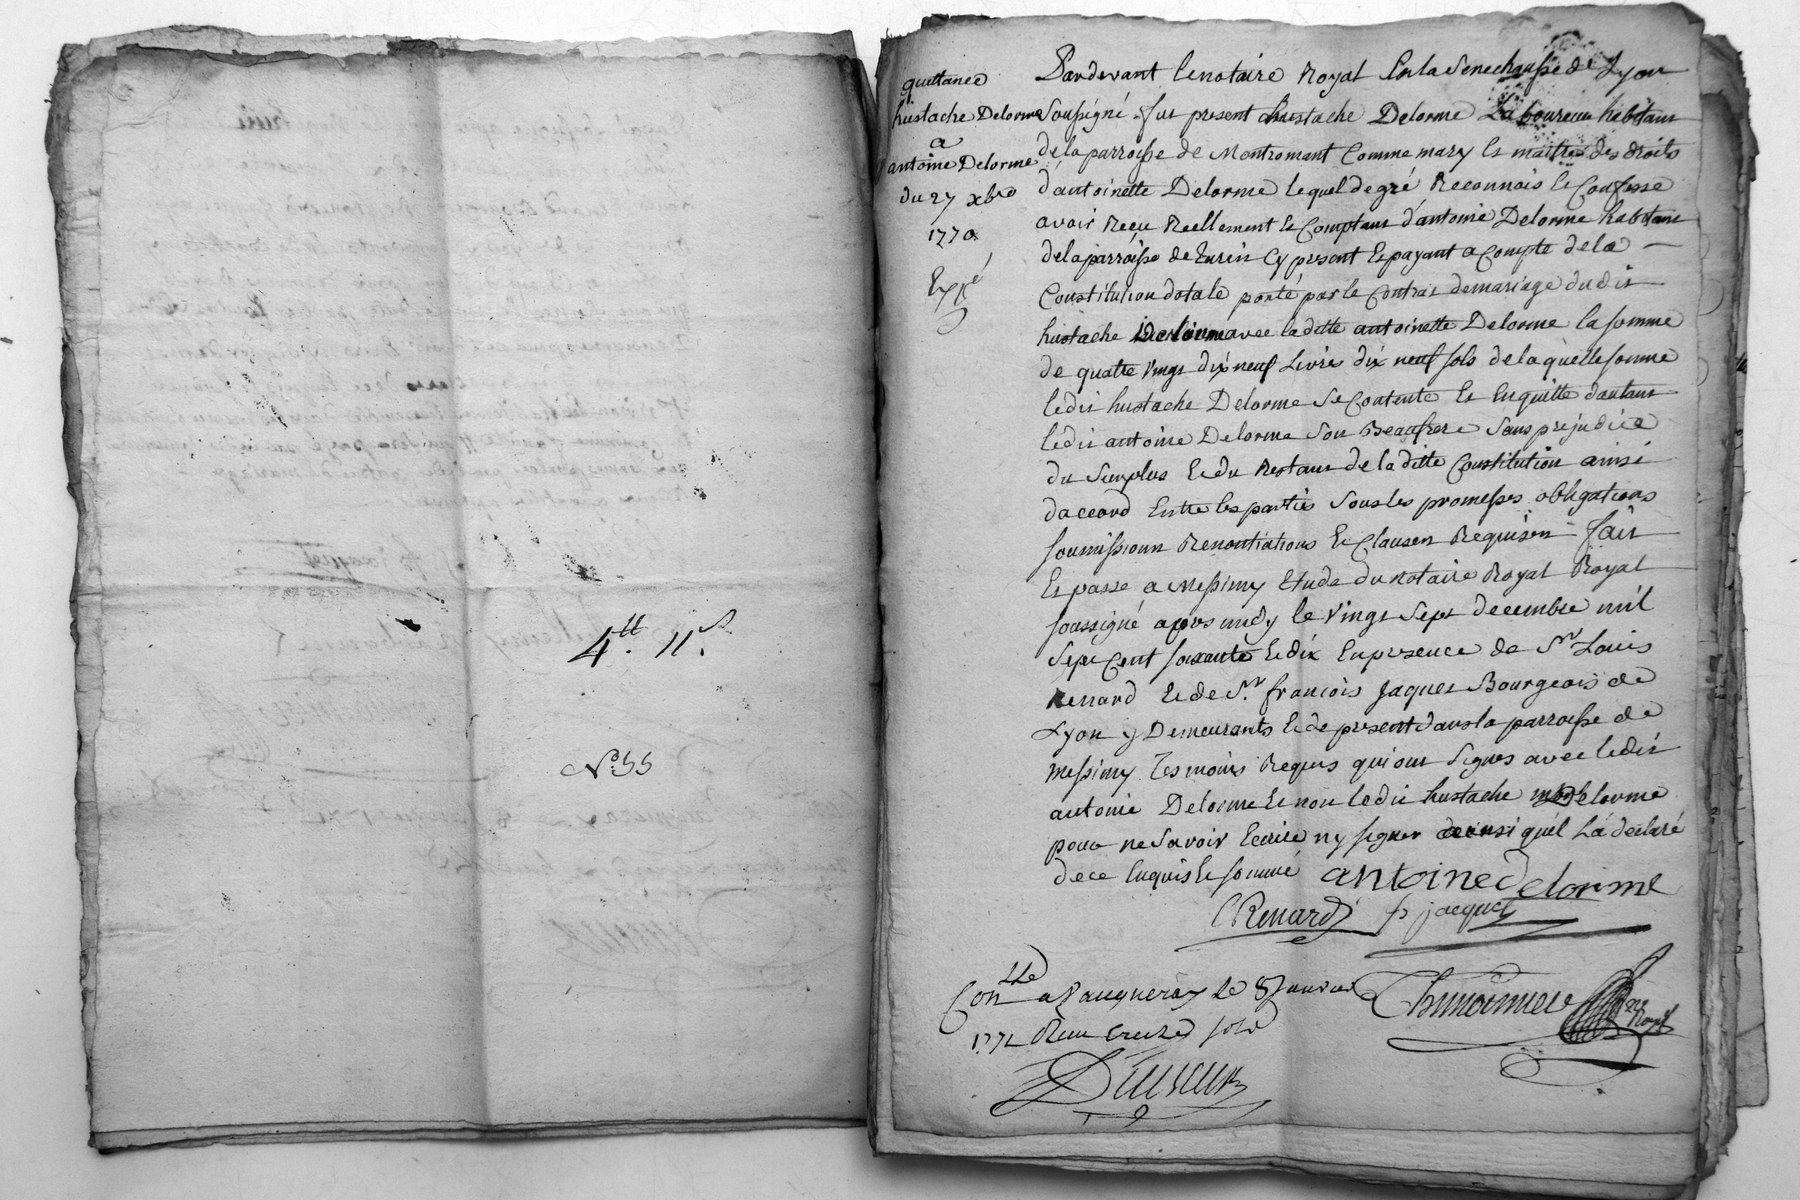 4.tt 11.s
N.o 55
quittance
hustache Delorme
a
antoine Delorme
du 27 xbre
1770
Expé
Pardevant le notaire Royal En la Senechaussée de Lyon
Soussigné fut present hustache Delorme Laboureur habitant
de la parroisse de Montromant Comme mary Et maitre des droits
d'antoinette Delorme lequel de gré Reconnois Et Confesse
avoir Reçu Reellement Et Comptant d'antoine Delorme habitant
de la parroisse de Cy present Et payant a Compte de la
Constitution dotale porté par le Contrat de mariage dudit
hustache Delorme avec la ditte antoinette Delorme la somme
de quatre Vingt dix neuf Livres dix neuf sols de laquelle somme
ledit hustache Delorme Se Contente Et En quitte d'autant
ledit antoine Delorme Son Beaufrere Sans prejudice
du Surplus Et du Restant de la ditte Constitution ainsi
d'accord Entre les parties Sous les promesses obligations
soumissions Renontiations Et Clauses Requises fait
Et passé a Messimy Etude du Notaire Royal Royal
soussigné apres midy le Vingt Sept decembre mil
Sept Cent soixante Et dix En presence de Sr. Louis
Renard Et de Sr. françois Jaques Bourgeois de
Lyon y Demeurants Et de present dans la parroisse de
Messimy Tesmoins Requis qui ont Signés avec ledit
antoine Delorme Et non ledit hustache Delorme
pour ne Savoir Ecrire ny signer ainsi qu'il L'a declaré
de ce Enquis Et sommé antoine Delorme
L Renard fs jacques
Conlle a Vaugneray le 8 Janvier
1771 Reçu treize sols